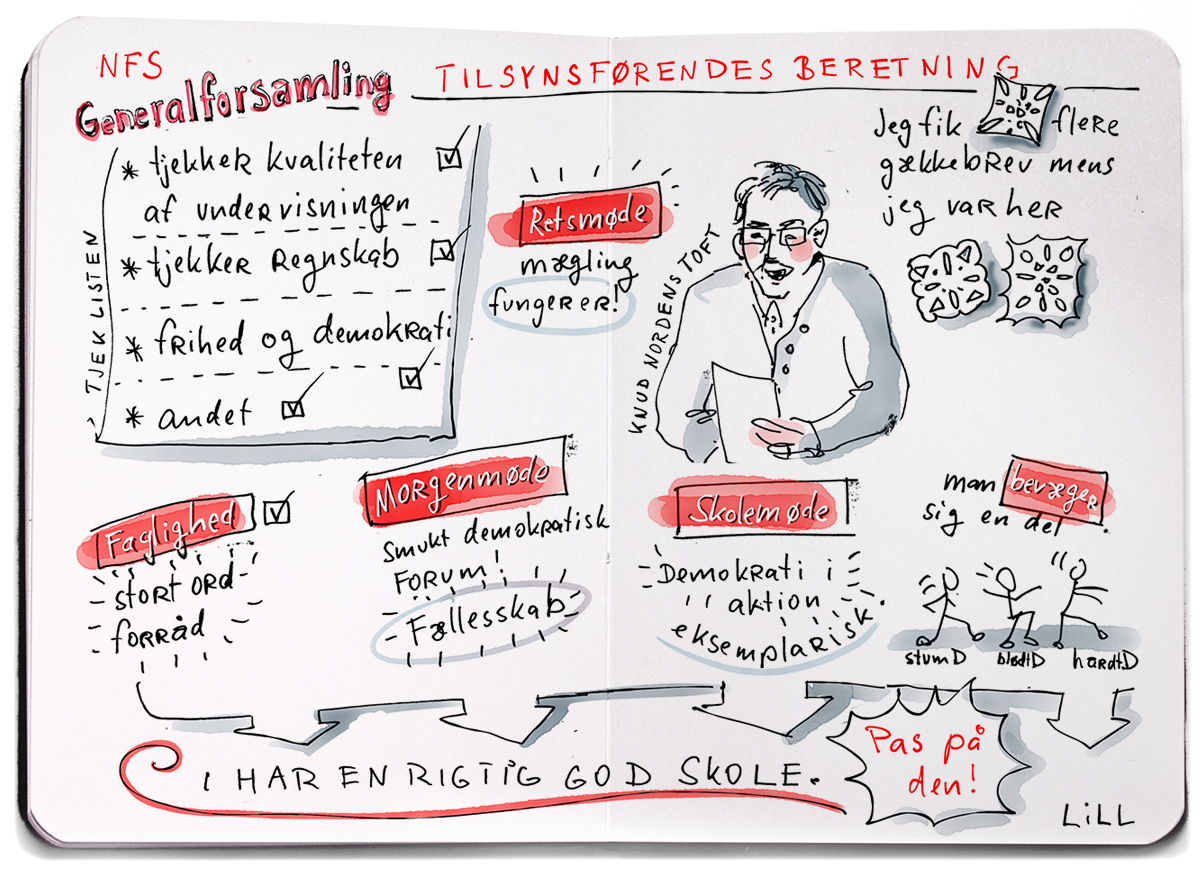 NFS
Generalforsamling
TILSYNSFØRENDES BERETNING
TJEKLISTEN
* tjekker kvaliteten
af undervisningen
* tjekker Regnskab
* frihed og demokrati
* andet
Retsmøde
mægling
fungerer!
KNUD NORDENS TOFT
Jeg fik flere
gækkebrev mens
jeg var her
Faglighed
stort ord
forråd
Morgenmøde
Smukt demokratisk
FORUM!
Fællesskab
Skolemøde
Demokrati i
aktion
eksemplarisk.
man bevæger
sig en del.
stumD blødtD hårdtD
I HAR EN RIGTIG GOD SKOLE.
Pas på
den!
LiLL